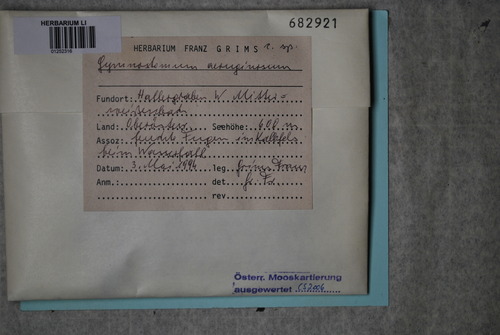 HERBARIUM LI
682921
HERBARIUM FRANZ GRIMS c. sp.
Gymnostomum aeruginosum
Fundort: Hallergraben W Mitter-
weißenbach
Land: Oberösterr. Seehöhe: 600 m
Assoz: feucht Fugen in Kalkfels
beim Wasserfall
Datum: 3. Mai 1994 leg. Grims Franz
Anm.: det.
rev.
Österr. Mooskartierung
ausgewertet CS 2006